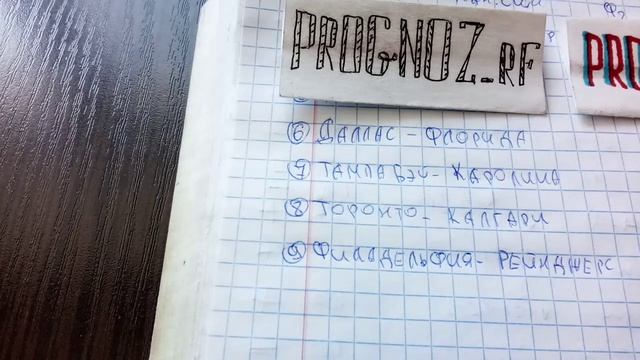 PROGNOZ_RF
PRO
6 ДАЛЛАС - ФЛОРИДА
7 ТАМПА БЭЙ - КАРОЛИНА
8 ТОРОНТО - КАЛГАРИ
9 ФИЛАДЕЛЬФИЯ - РЕЙНДЖЕРС